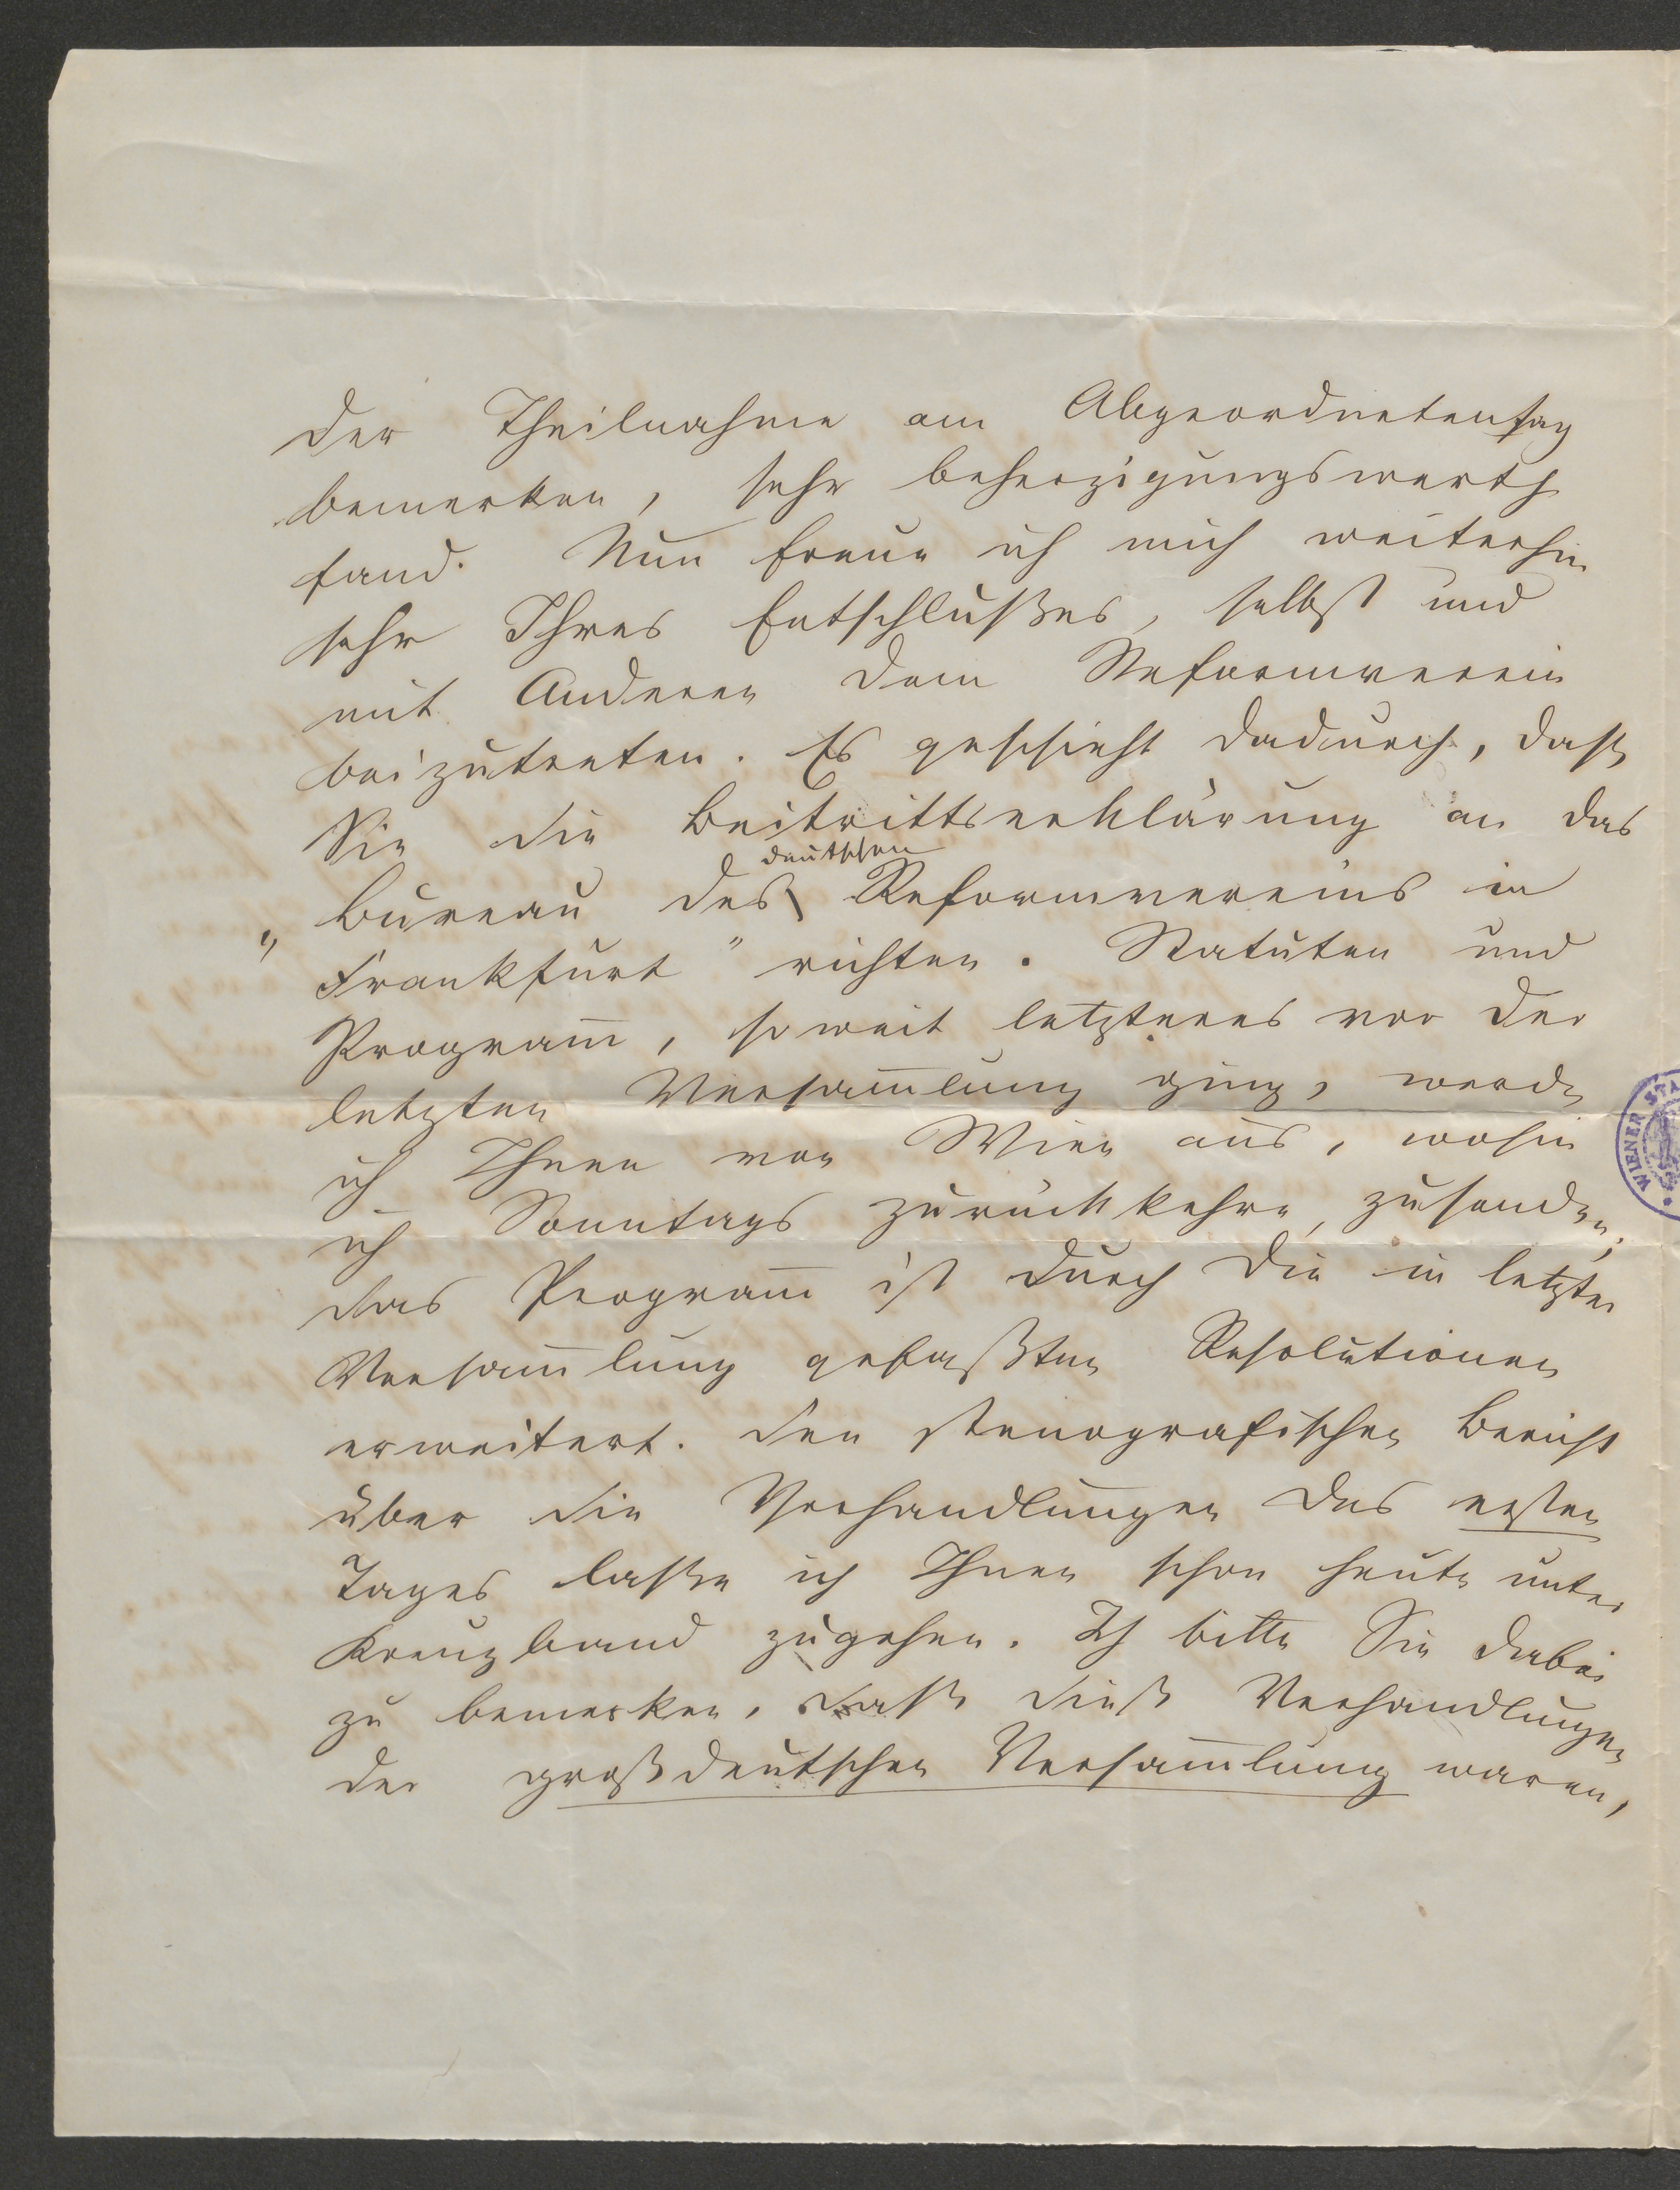 der Theilnahme am Abgeordnetentag
bemerken, sehr beherzigungswerth
fand. Nun freue ich mich weiterhin
sehr Ihres Entschlußes, selbst und
mit Anderen dem Reformverein
beizutreten. Es geschieht dadurch, daß
Sie die Beitrittserklärung an das
deutschen
„Bureau des Reformvereins in
Frankfurt" richten. Statuten und
Program̄, so weit letzteres vor der
letzten Versam̄lung ging, werde
ich Ihnen von Wien aus, wohin
ich Sonntags zurückkehre, zusenden;
das Program̄ ist durch die in letzter
Versam̄lung gefaßten Resolutionen
erweitert. Den stenografischen Bericht
über die Verhandlungen des ersten
Tages laße ich Ihnen schon heute unter
Kreuzband zugehen. Ich bitte Sie dabei
zu bemerken, daß dieß Verhandlungen
der großdeutschen Versam̄lung waren,
WIENER STA